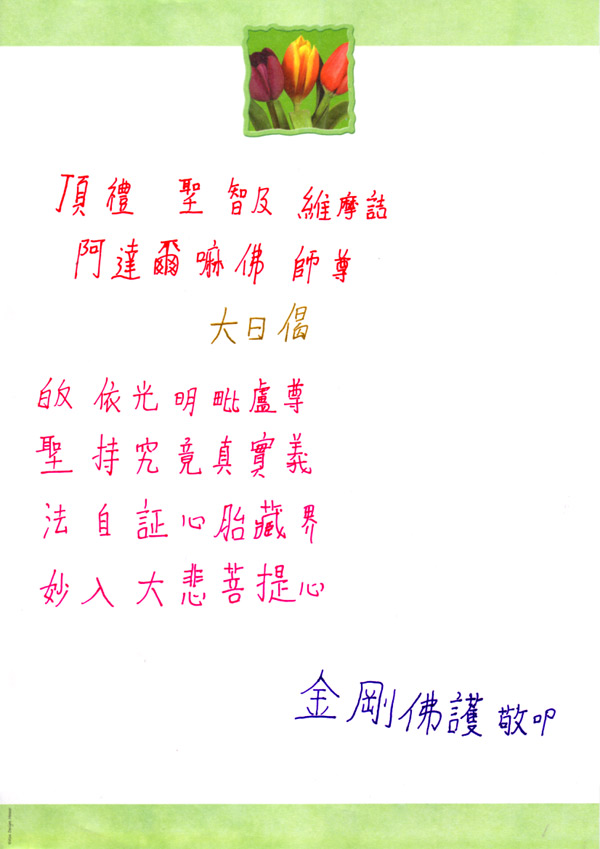 頂禮 聖智及維摩詰
阿達爾嘛佛師尊
大日偈
皈依光明毗盧尊
聖持究竟真實義
法自証心胎藏界
妙入大悲菩提心
金剛佛護敬叩